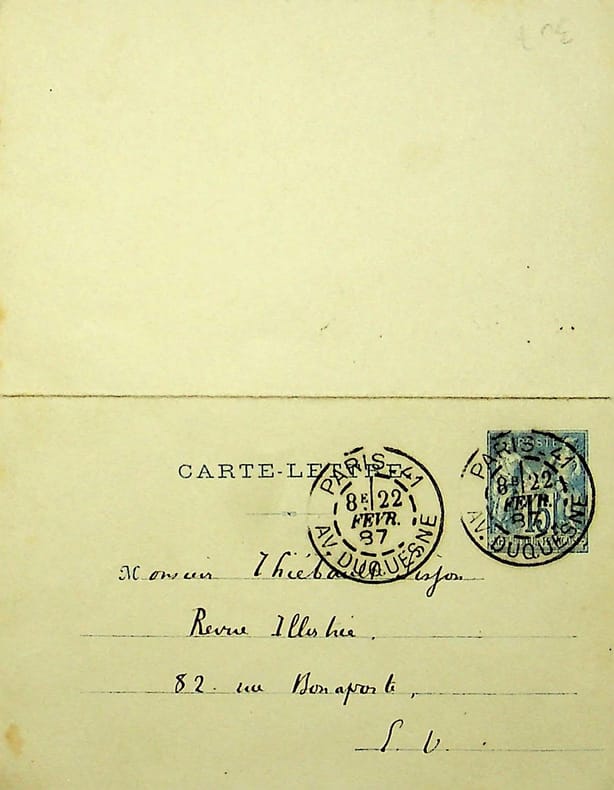 CARTE-LETTRE
PARIS 41
8E 22
FEVR.
87
AV. DUQUESNE
POSTE
PARIS 41
8E 22
FEVR.
87
15
AV. DUQUESNE
Monsieur Thiébault Sisson
Revue Illustrée.
82. rue Bonaparte,
E. V.